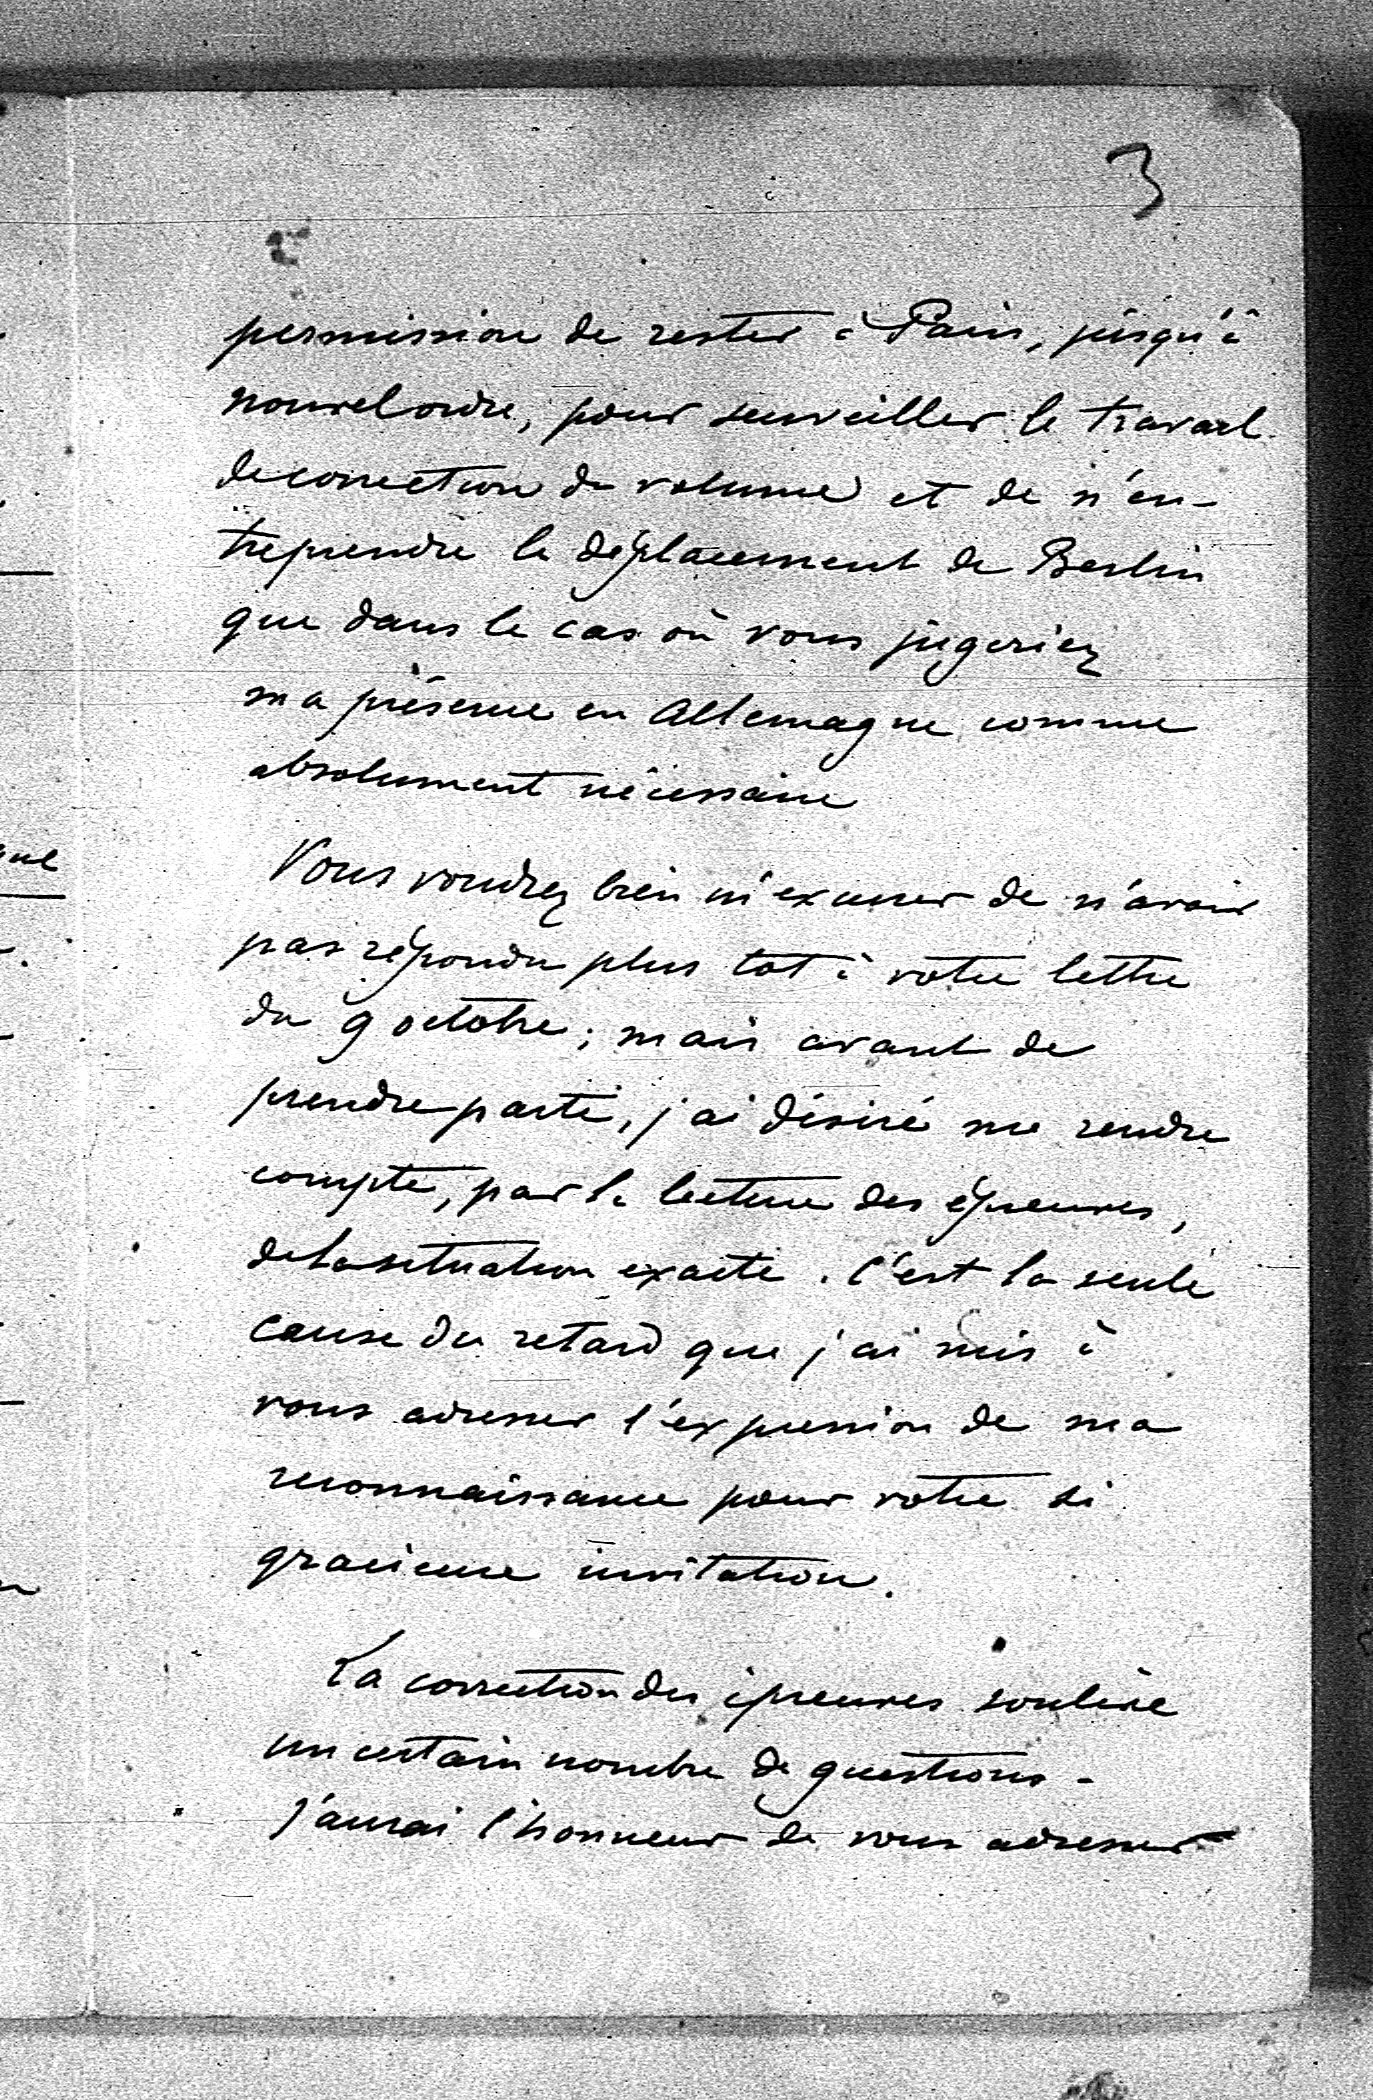 3
permission de rester à Paris, jusqu'à
nouvel ordre, pour surveiller le travail
de correction du volume et de n'en-
treprendre le déplacement de Berlin
que dans le cas où vous jugeriez
ma présence en Allemagne comme
absolument nécessaire
Vous voudrez bien m'excuser de n'avoir
pas répondu plus tot à votre lettre
du 9 octobre; mais avant de
prendre parti, j'ai désiré me rendre
compte, par la lecture des épreuves,
de la situation exacte. C'est la seule
cause du retard que j'ai mis à
vous adresser l'expression de ma
reconnaissance pour votre si
gracieuse invitation.
La correction des épreuves soulève
un certain nombre de questions -
J'aurai l'honneur de vous adresser